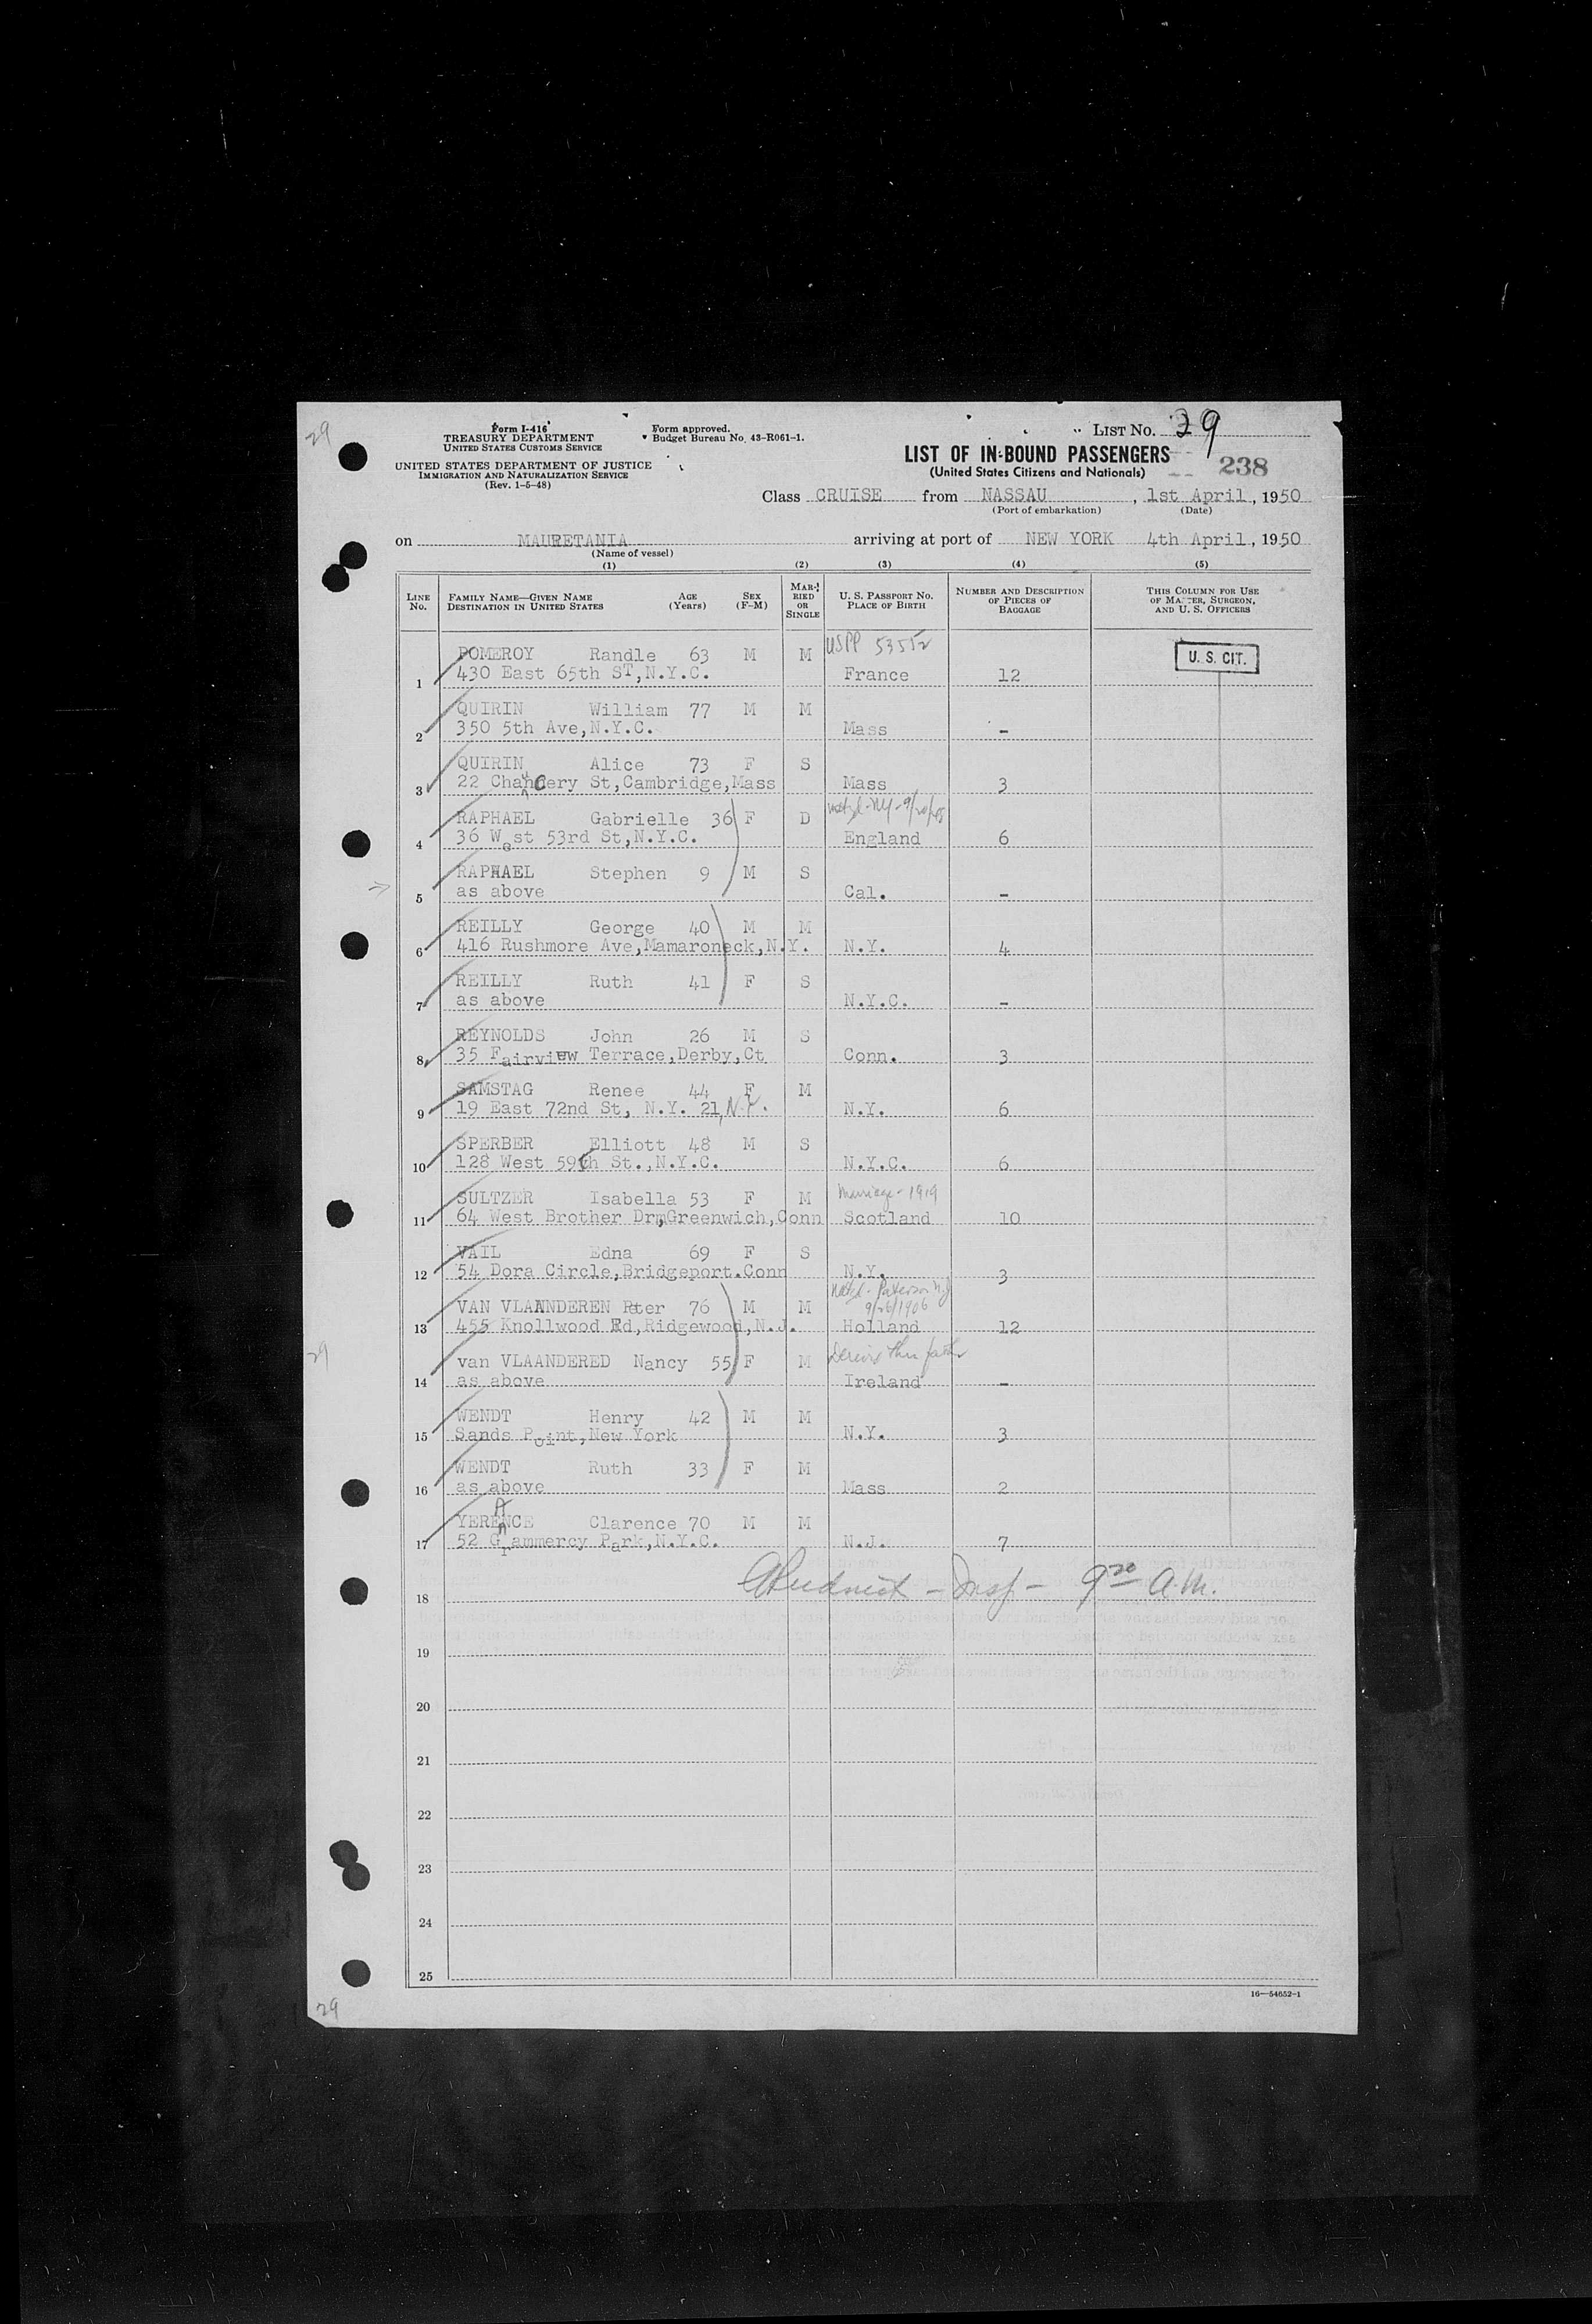 29
Form I-416
TREASURY DEPARTMENT
UNITED STATES CUSTOMS SERVICE
UNITED STATES DEPARTMENT OF JUSTICE
IMMIGRATION AND NATURALIZATION SERVICE
(Rev. 1-5-48)
Form approved.
Budget Bureau No. 43-R061-1.
LIST No. 29
LIST OF IN-BOUND PASSENGERS
(United States Citizens and Nationals)
238
Class CRUISE from NASSAU , 1st April, 1950
(Port of embarkation) (Date)
on MAURETANIA arriving at port of NEW YORK 4th April, 1950
(Name of vessel)
(1) (2) (3) (4) (5)
LINE No. FAMILY NAME—GIVEN NAME DESTINATION IN UNITED STATES AGE (Years) SEX (F-M) MARRIED OR SINGLE U. S. PASSPORT No. PLACE OF BIRTH NUMBER AND DESCRIPTION OF PIECES OF BAGGAGE THIS COLUMN FOR USE OF MASTER, SURGEON, AND U. S. OFFICERS
POMEROY Randle 63 M M USPP 53552 U. S. CIT.
1 430 East 65th ST,N.Y.C. France 12
QUIRIN William 77 M M
2 350 5th Ave,N.Y.C. Mass -
QUIRIN Alice 73 F S
3 22 Chancery St,Cambridge,Mass Mass 3
RAPHAEL Gabrielle 36 F D
4 36 West 53rd St,N.Y.C. England 6
RAPHAEL Stephen 9 M S
5 as above Cal. -
REILLY George 40 M M
6 416 Rushmore Ave,Mamaroneck,N.Y. N.Y. 4
REILLY Ruth 41 F S
7 as above N.Y.C. -
REYNOLDS John 26 M S
8 35 Fairview Terrace,Derby,Ct Conn. 3
SAMSTAG Renee 44 F M
9 19 East 72nd St, N.Y. 21, N.Y. N.Y. 6
SPERBER Elliott 48 M S
10 128 West 59th St.,N.Y.C. N.Y.C. 6
SULTZER Isabella 53 F M Marriage - 1919
11 64 West Brother Drm,Greenwich,Conn Scotland 10
VAIL Edna 69 F S
12 54 Dora Circle,Bridgeport.Conn N.Y. 3
VAN VLAANDEREN Peter 76 M M Paterson N.J. 9/26/1906
13 455 Knollwood Rd,Ridgewood,N.J. Holland 12
van VLAANDERED Nancy 55 F M
14 as above Ireland -
WENDT Henry 42 M M
15 Sands Point,New York N.Y. 3
WENDT Ruth 33 F M
16 as above Mass 2
YERANCE Clarence 70 M M
17 52 Grammercy Park,N.Y.C. N.J. 7
18 - Insp - 9 30 a.m.
19
20
21
22
23
24
25
16—54652-1
29
29